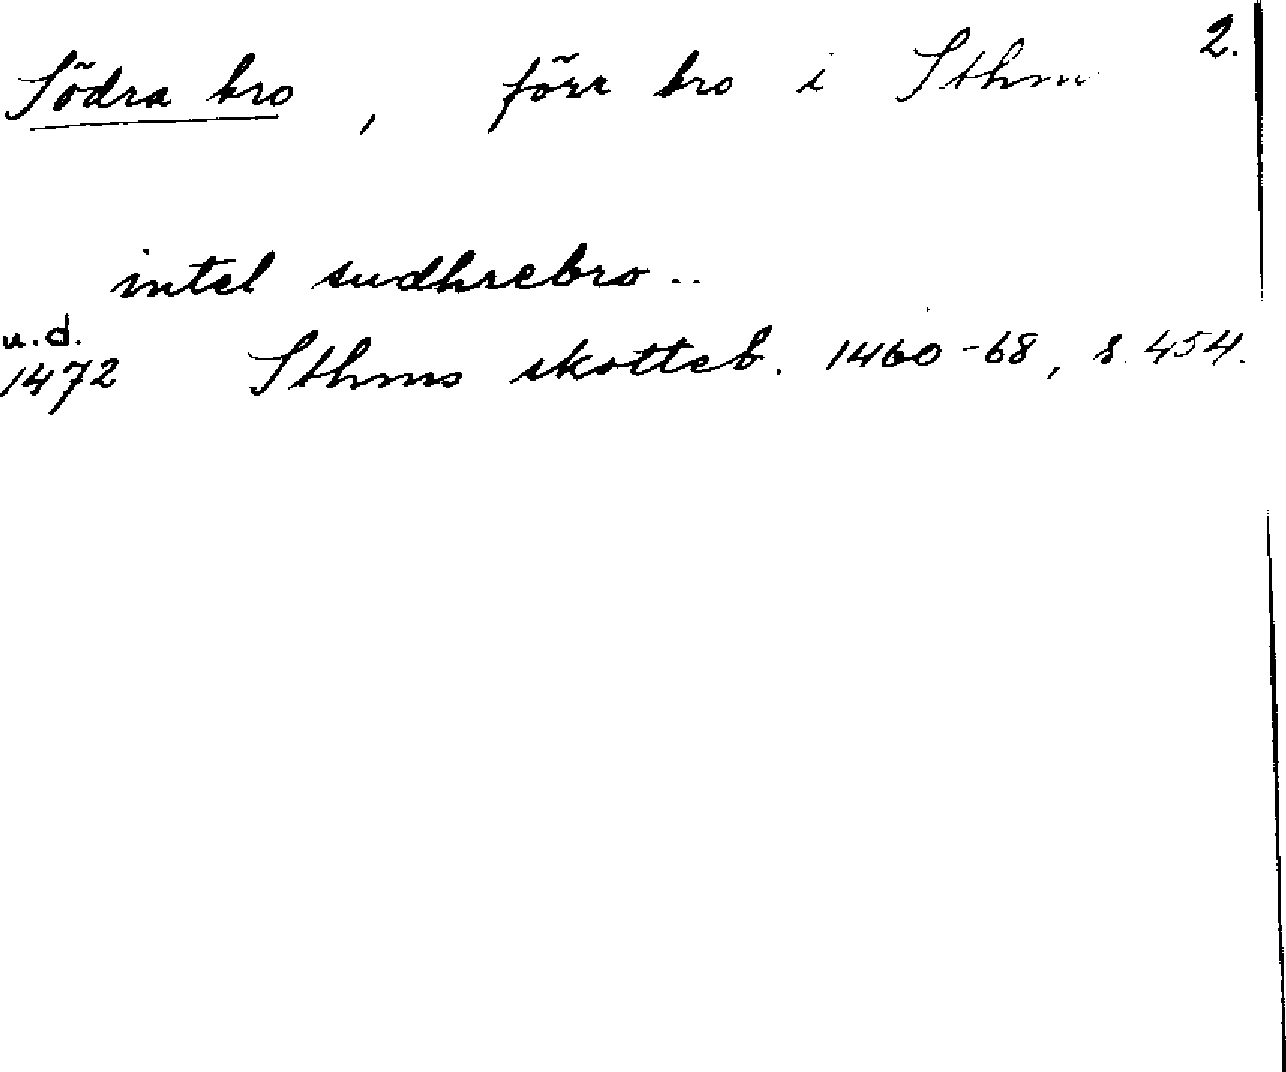 2.
Södra bro, förr bro i Sthm
intel sudhrebro..
u.d.
1472 Sthms skotteb. 1460-68, s. 454.